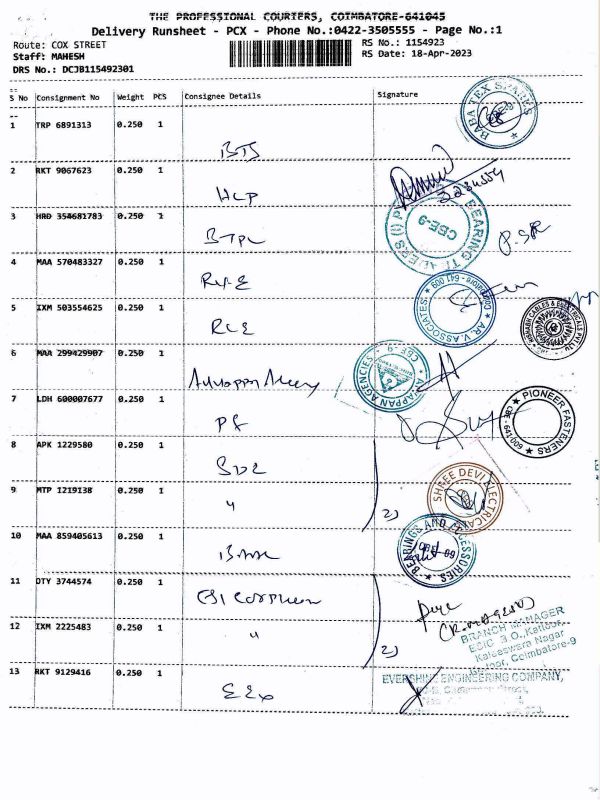 THE PROFESSIONAL COURIERS, COIMBATORE-641045
Delivery Runsheet - PCX - Phone No.:0422-3505555 - Page No.:1
Route: COX STREET
RS No.: 1154923
Staff: MAHESH
RS Date: 18-Apr-2023
DRS No.: DCJB115492301
S No Consignment No Weight PCS Consignee Details Signature
1 TRP 6891313 0.250 1
BABA TEX SPARES
BTS
2 RKT 9067623 0.250 1
HCP
3 HRD 354681783 0.250 1
CBE-9
BTPL
4 MAA 570483327 0.250 1
A.R.V. ASSOCIATES
5 IXM 503554625 0.250 1
RISHABH CABLES & ELECTRICALS PVT LTD
RCE
6 MAA 299429907 0.250 1
AIYAPPAN AGENCIES CBE-9
7 LDH 600007677 0.250 1
PIONEER FASTENERS CBE-641 009
PF
8 APK 1229580 0.250 1
SDE
SHREE DEVI ELECTRICAL
9 MTP 1219138 0.250 1
"
2)
10 MAA 859405613 0.250 1
BEARINGS AND ACCESSORIES
11 OTY 3744574 0.250 1
BRANCH MANAGER
ESIC B.O., Kattoor,
Kaleeswara Nagar
Coimbatore-9
12 IXM 2225483 0.250 1
"
2)
13 RKT 9129416 0.250 1
EVERSHINE ENGINEERING COMPANY,